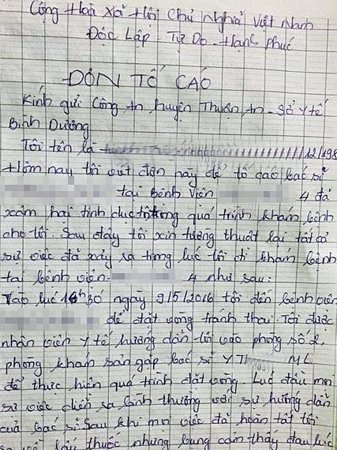 Cộng Hoà Xã Hội Chủ Nghĩa Việt Nam
Độc Lập Tự Do - Hạnh Phúc
ĐƠN TỐ CÁO
Kính gửi Công An, huyện Thuận An - Sở Y tế
Bình Dương
Tôi tên là 12/198
Hôm nay tôi viết đơn này để tố cáo bác sĩ
tại Bệnh Viện 4 đã
xâm hại tình dục tôi trong quá trình khám bệnh
cho tôi. Sau đây tôi xin tường thuật lại tất cả
sự việc đã xảy ra trong lúc tôi đi khám bệnh
tại bệnh viện 4 như sau:
Vào lúc 16h30 ngày 2/5/2016 tôi đến bệnh viện
để đặt vòng tránh thai. Tôi được
nhân viên Y tế hướng dẫn tôi vào phòng số 2,
phòng khám sản gặp bác sĩ Y ML
để thực hiện quá trình đặt vòng. Lúc đầu mọi
sự việc diễn ra bình thường với sự hướng dẫn
của bác sĩ. Sau khi mọi việc đã hoàn tất tôi
lấy thuốc nhưng bụng cảm thấy đau lúc